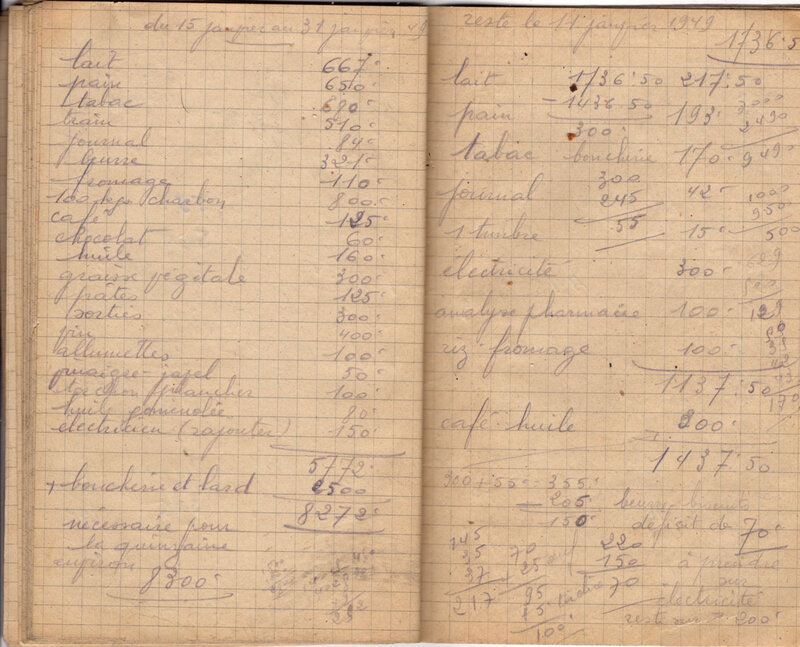 du 15 janvier au 31 janvier 49
lait 667
pain 650
tabac 680
train 510
journal 84
beurre 321
fromage 110
100 kgs charbon 800
café 125
chocolat 60
huile 160
graisse végétale 300
pâtes 125
sorties 300
vin 400
allumettes 100
vinaigre javel 50
torchon plancher 100
huile 80
électricien (rajouter) 150
5772
+ boucherie et lard 2500
8272
nécessaire pour
la quinzaine
environ
8300
reste le 11 janvier 1949
1736.50
lait 1736.50 217.50
- 1436.50
pain 300 193
3000
2490
tabac boucherie 170 9490
journal 300 42
245
55
1 timbre 15
1000
950
500
électricité 300
analyse pharmacie 100
riz fromage 100
1137.50
café huile 200
1437.50
300 + 55 = 355
- 205
150
déficit de 70
145
35
37
217
70
25
95
15
100
220
150
70
à prendre
sur
électricité
200